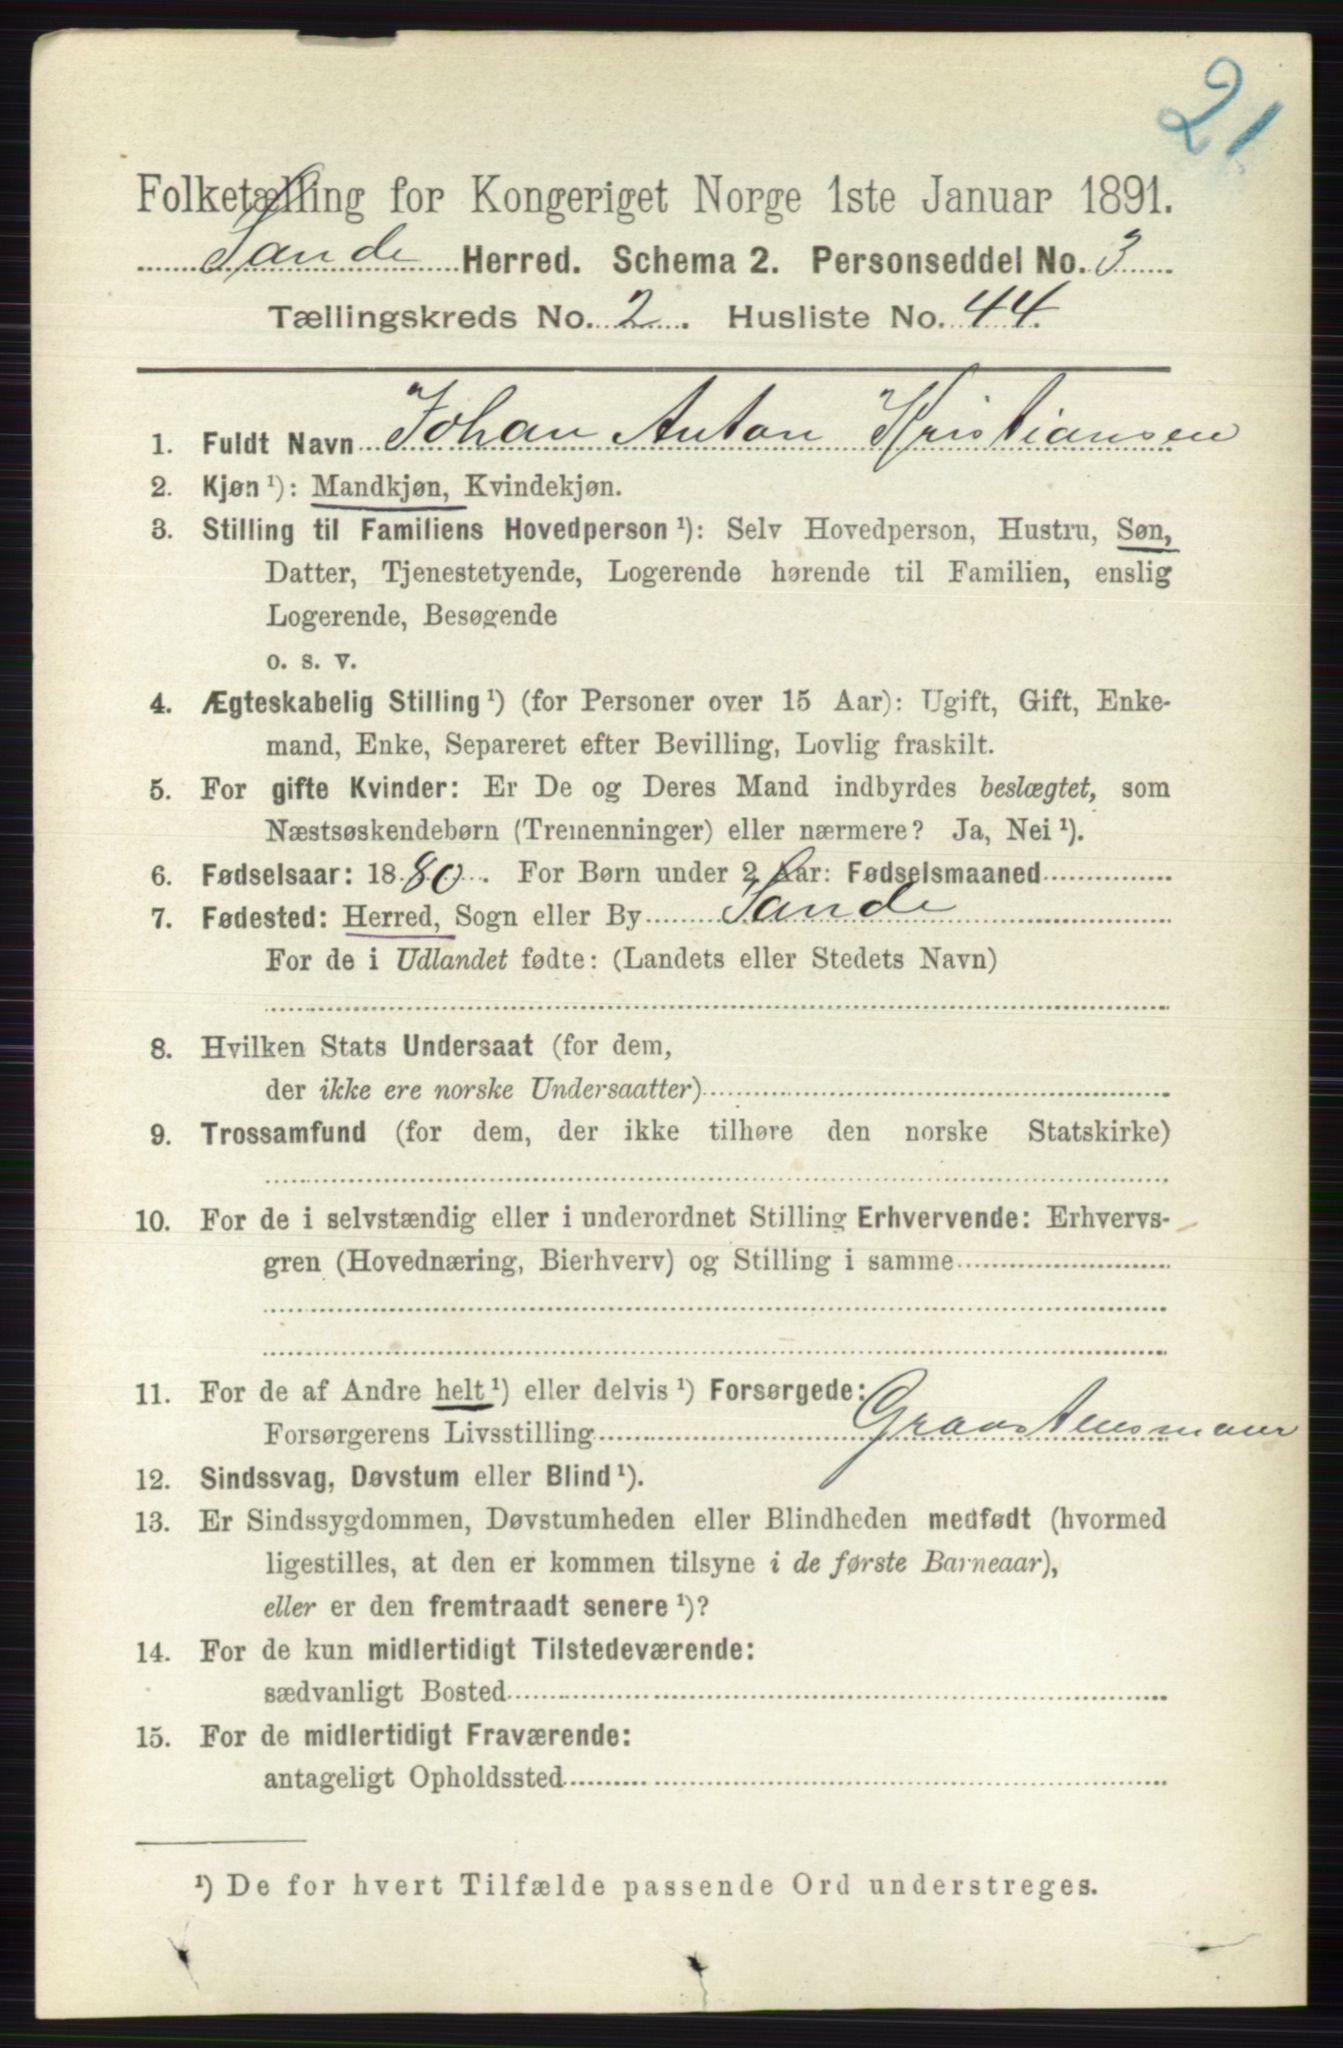 21
Folketælling for Kongeriget Norge 1ste Januar 1891.
Sande Herred. Schema 2. Personseddel No. 3
Tællingskreds No. 2. Husliste No. 44.
1. Fuldt Navn Johan Anton Kristiansen
2. Kjøn ¹): Mandkjøn, Kvindekjøn.
3. Stilling til Familiens Hovedperson ¹): Selv Hovedperson, Hustru, Søn,
Datter, Tjenestetyende, Logerende hørende til Familien, enslig
Logerende, Besøgende
o. s. v.
4. Ægteskabelig Stilling ¹) (for Personer over 15 Aar): Ugift, Gift, Enke-
mand, Enke, Separeret efter Bevilling, Lovlig fraskilt.
5. For gifte Kvinder: Er De og Deres Mand indbyrdes beslægtet, som
Næstsøskendebørn (Tremenninger) eller nærmere? Ja, Nei ¹).
6. Fødselsaar: 1880. For Børn under 2 Aar: Fødselsmaaned
7. Fødested: Herred, Sogn eller By Sande
For de i Udlandet fødte: (Landets eller Stedets Navn)
8. Hvilken Stats Undersaat (for dem,
der ikke ere norske Undersaatter)
9. Trossamfund (for dem, der ikke tilhøre den norske Statskirke)
10. For de i selvstændig eller i underordnet Stilling Erhvervende: Erhvervs-
gren (Hovednæring, Bierhverv) og Stilling i samme
11. For de af Andre helt ¹) eller delvis ¹) Forsørgede:
Forsørgerens Livsstilling
12. Sindssvag, Døvstum eller Blind ¹).
13. Er Sindssygdommen, Døvstumheden eller Blindheden medfødt (hvormed
ligestilles, at den er kommen tilsyne i de første Barneaar),
eller er den fremtraadt senere ¹)?
14. For de kun midlertidigt Tilstedeværende:
sædvanligt Bosted
15. For de midlertidigt Fraværende:
antageligt Opholdssted
¹) De for hvert Tilfælde passende Ord understreges.